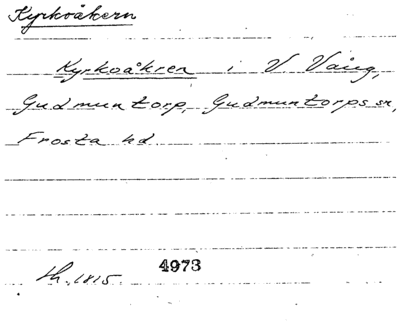 Kyrkoåkern
Kyrkoåkren i V Vång,
Gudmuntorp, Gudmuntorps sn,
Frosta hd
lh. 1815. 4973